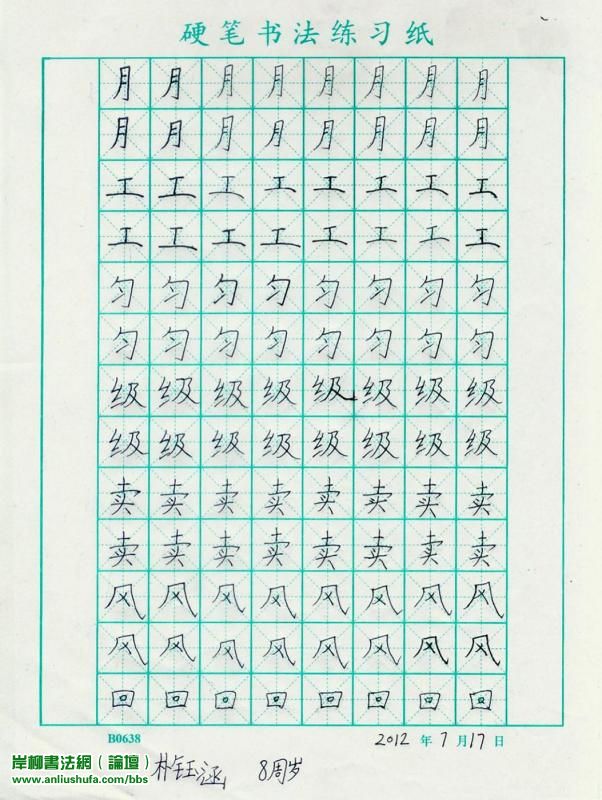 硬笔书法练习纸
月月月月月月月月
月月月月月月月月
工工工工工工工工
工工工工工工工工
匀匀匀匀匀匀匀匀
匀匀匀匀匀匀匀匀
级级级级级级级级
级级级级级级级级
卖卖卖卖卖卖卖卖
卖卖卖卖卖卖卖卖
风风风风风风风风
风风风风风风风风
回回回回回回回回
B0638 2012 年 7 月 17 日
朴钰涵 8周岁
岸柳書法網（論壇）
www.anliushufa.com/bbs